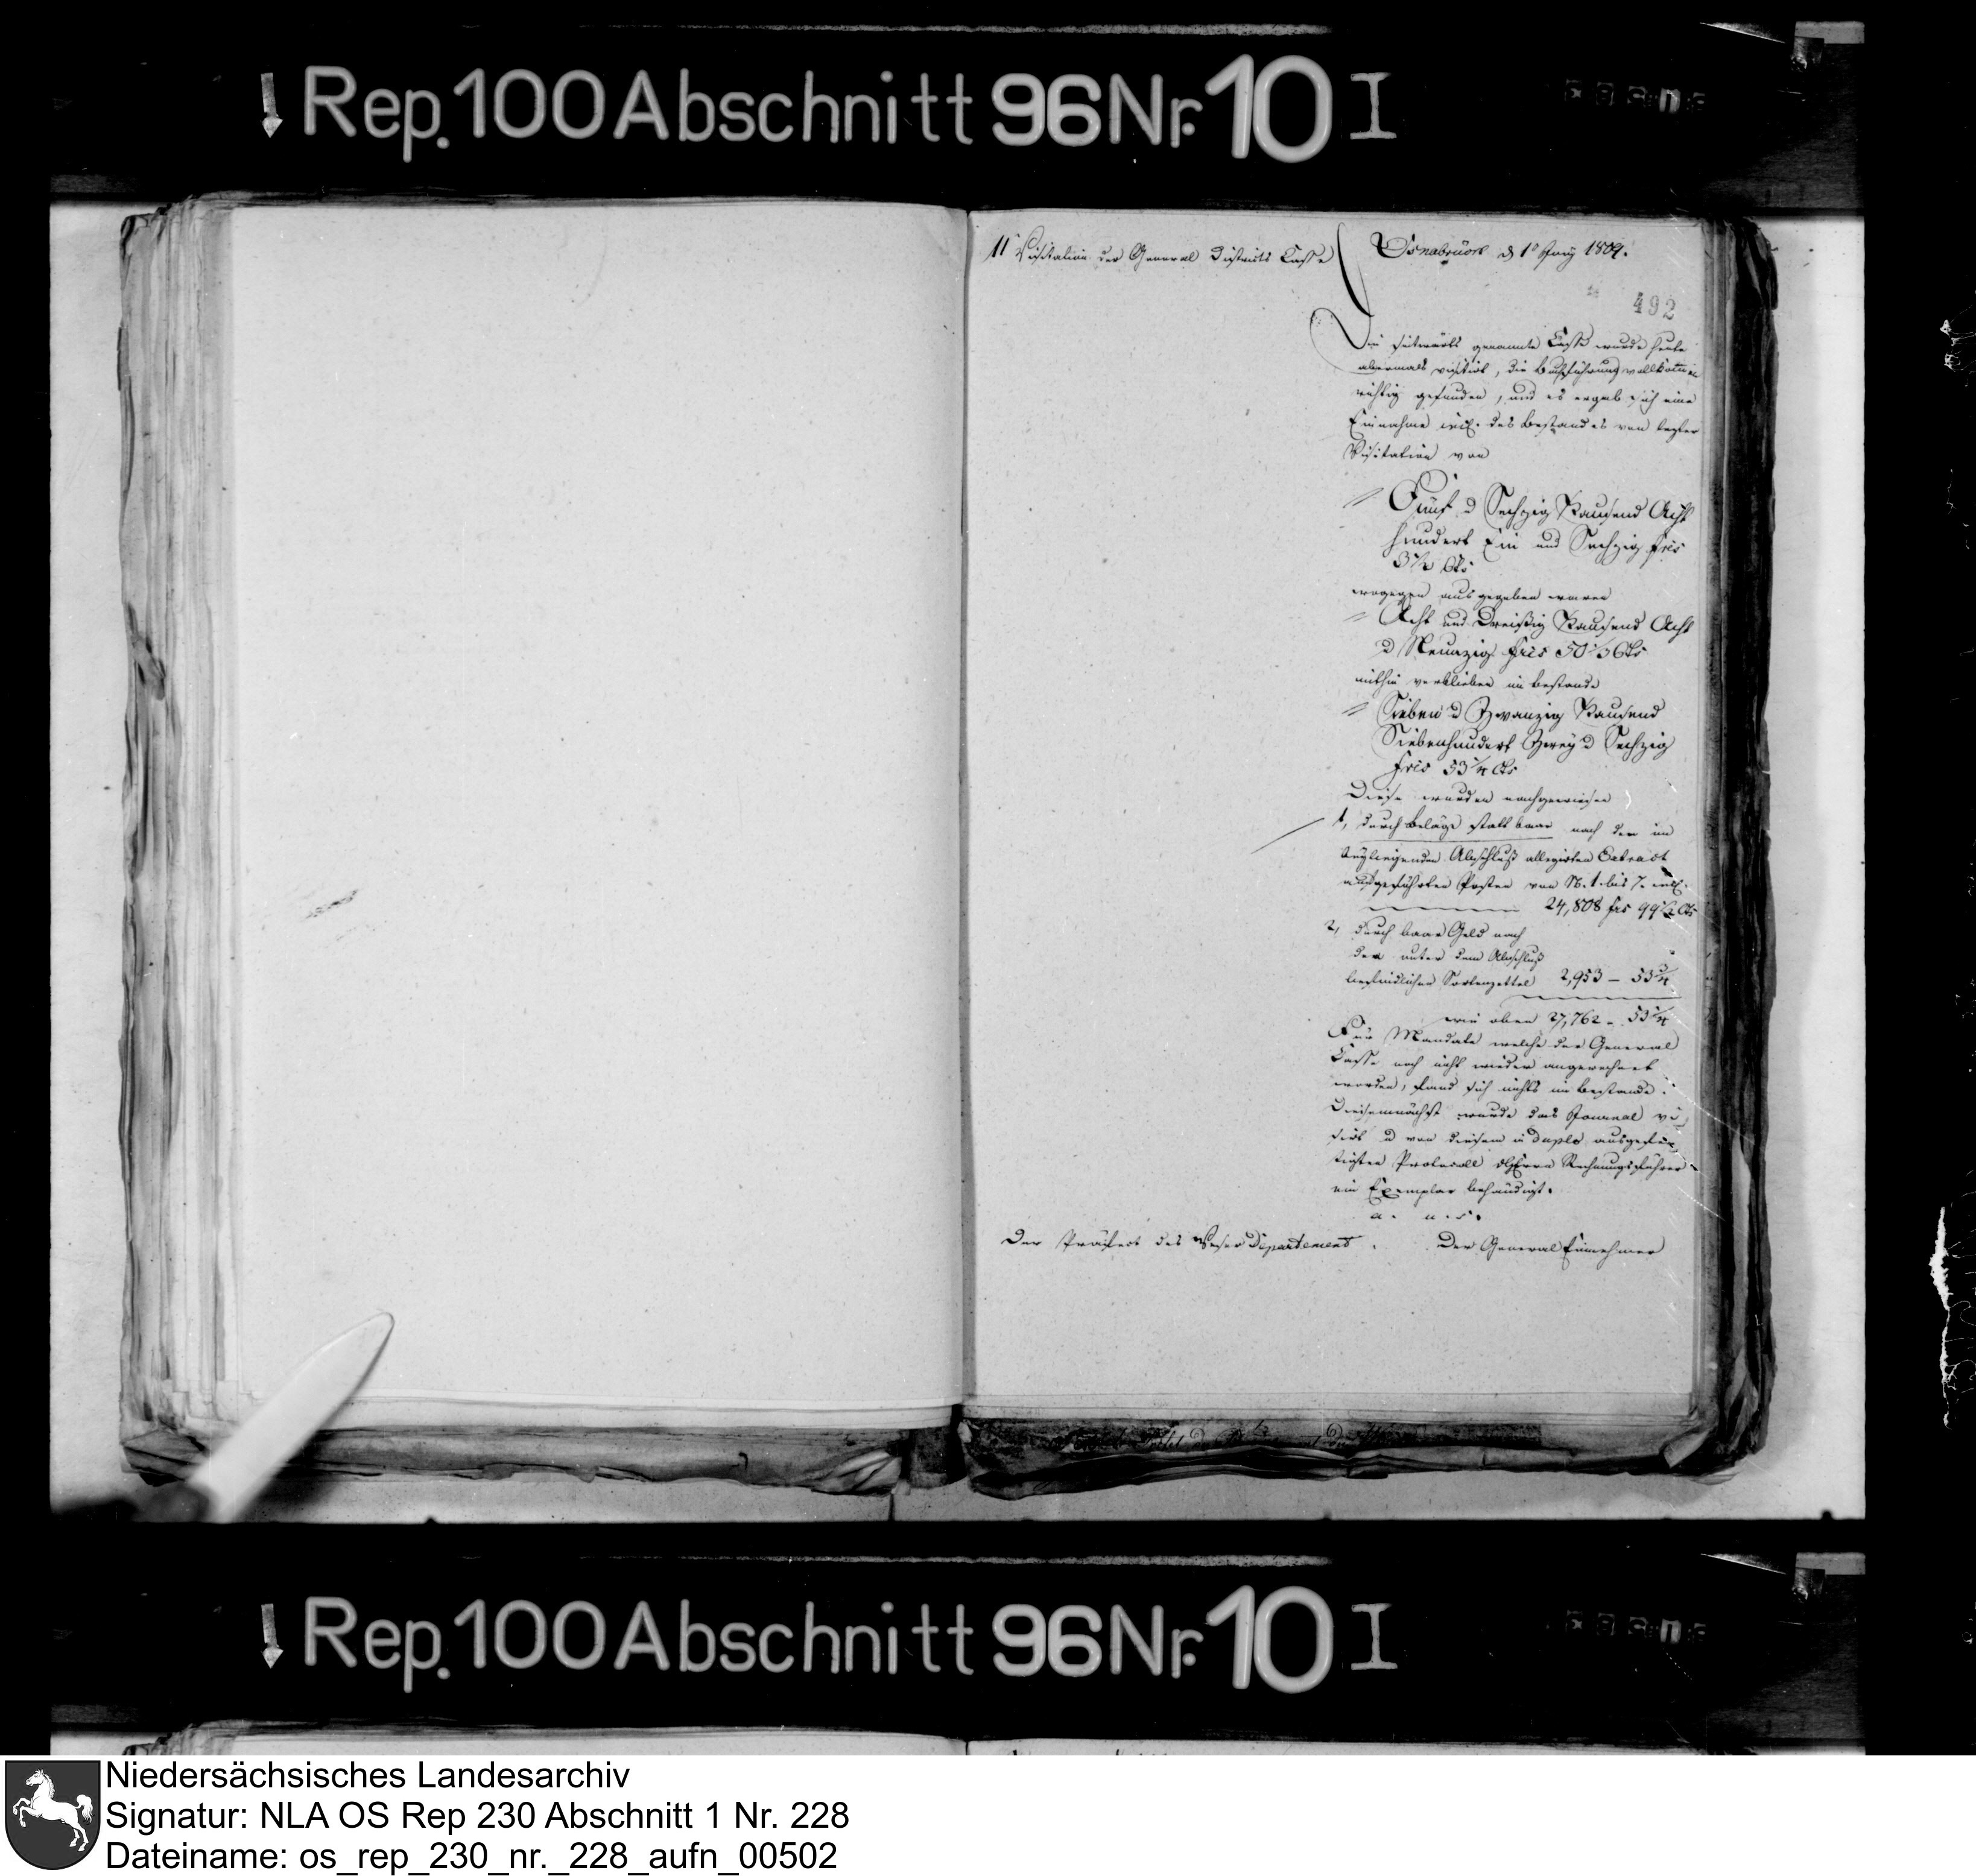 Rep. 100 Abschnitt 96 Nr. 10 I
11te Visitation der General Districts Casse
Osnabrück d 1t Juny 1809.
492
Die seitwärts genannte Casse wurde heute
abermals visitirt, die Buchführung vollkommen
richtig gefunden, und es ergab sich eine
Einnahme incl. des Bestandes von lezter
Visitation von
Fünf d Sechzig Tausend Acht
hundert Ein und Sechzig frcs
Cts
wogegen ausgegeben waren
Acht und Dreißig Tausend Acht
d Neunzig frcs 50 Cts
mithin verblieben im Bestande
Sieben d Zwanzig Tausend
Siebenhundert Zwey d Sechzig
frcs 53 1/4 Cts
Diese wurden nachgewiesen
1, durch Beläge statt baar nach den im
beyliegenden Abschluß allegirten Extract
aufgeführten Posten von N. 1. bis 7. incl.
24,808 frs 99 1/2 Cts
2, durch baar Geld nach
der unter dem Abschluß
befindlichen Sortenzettel 2,953 – 53 3/4
wie oben 27,762 – 53 1/4
Für Mandate welche der General
Casse noch nicht wieder angerechnet
worden, fand sich nichts im Bestande.
Diesemnächst wurde das Journal vi
sirt d von diesem in duplo ausgefer
tigten Protocoll dHerrn Rechnungsführer
ein Exemplar behändigt.
a. u. s.
Der Präfect des Weser Departements.
Der General Einnehmer
Rep. 100 Abschnitt 96 Nr. 10 I
Niedersächsisches Landesarchiv
Signatur: NLA OS Rep 230 Abschnitt 1 Nr. 228
Dateiname: os_rep_230_nr._228_aufn_00502